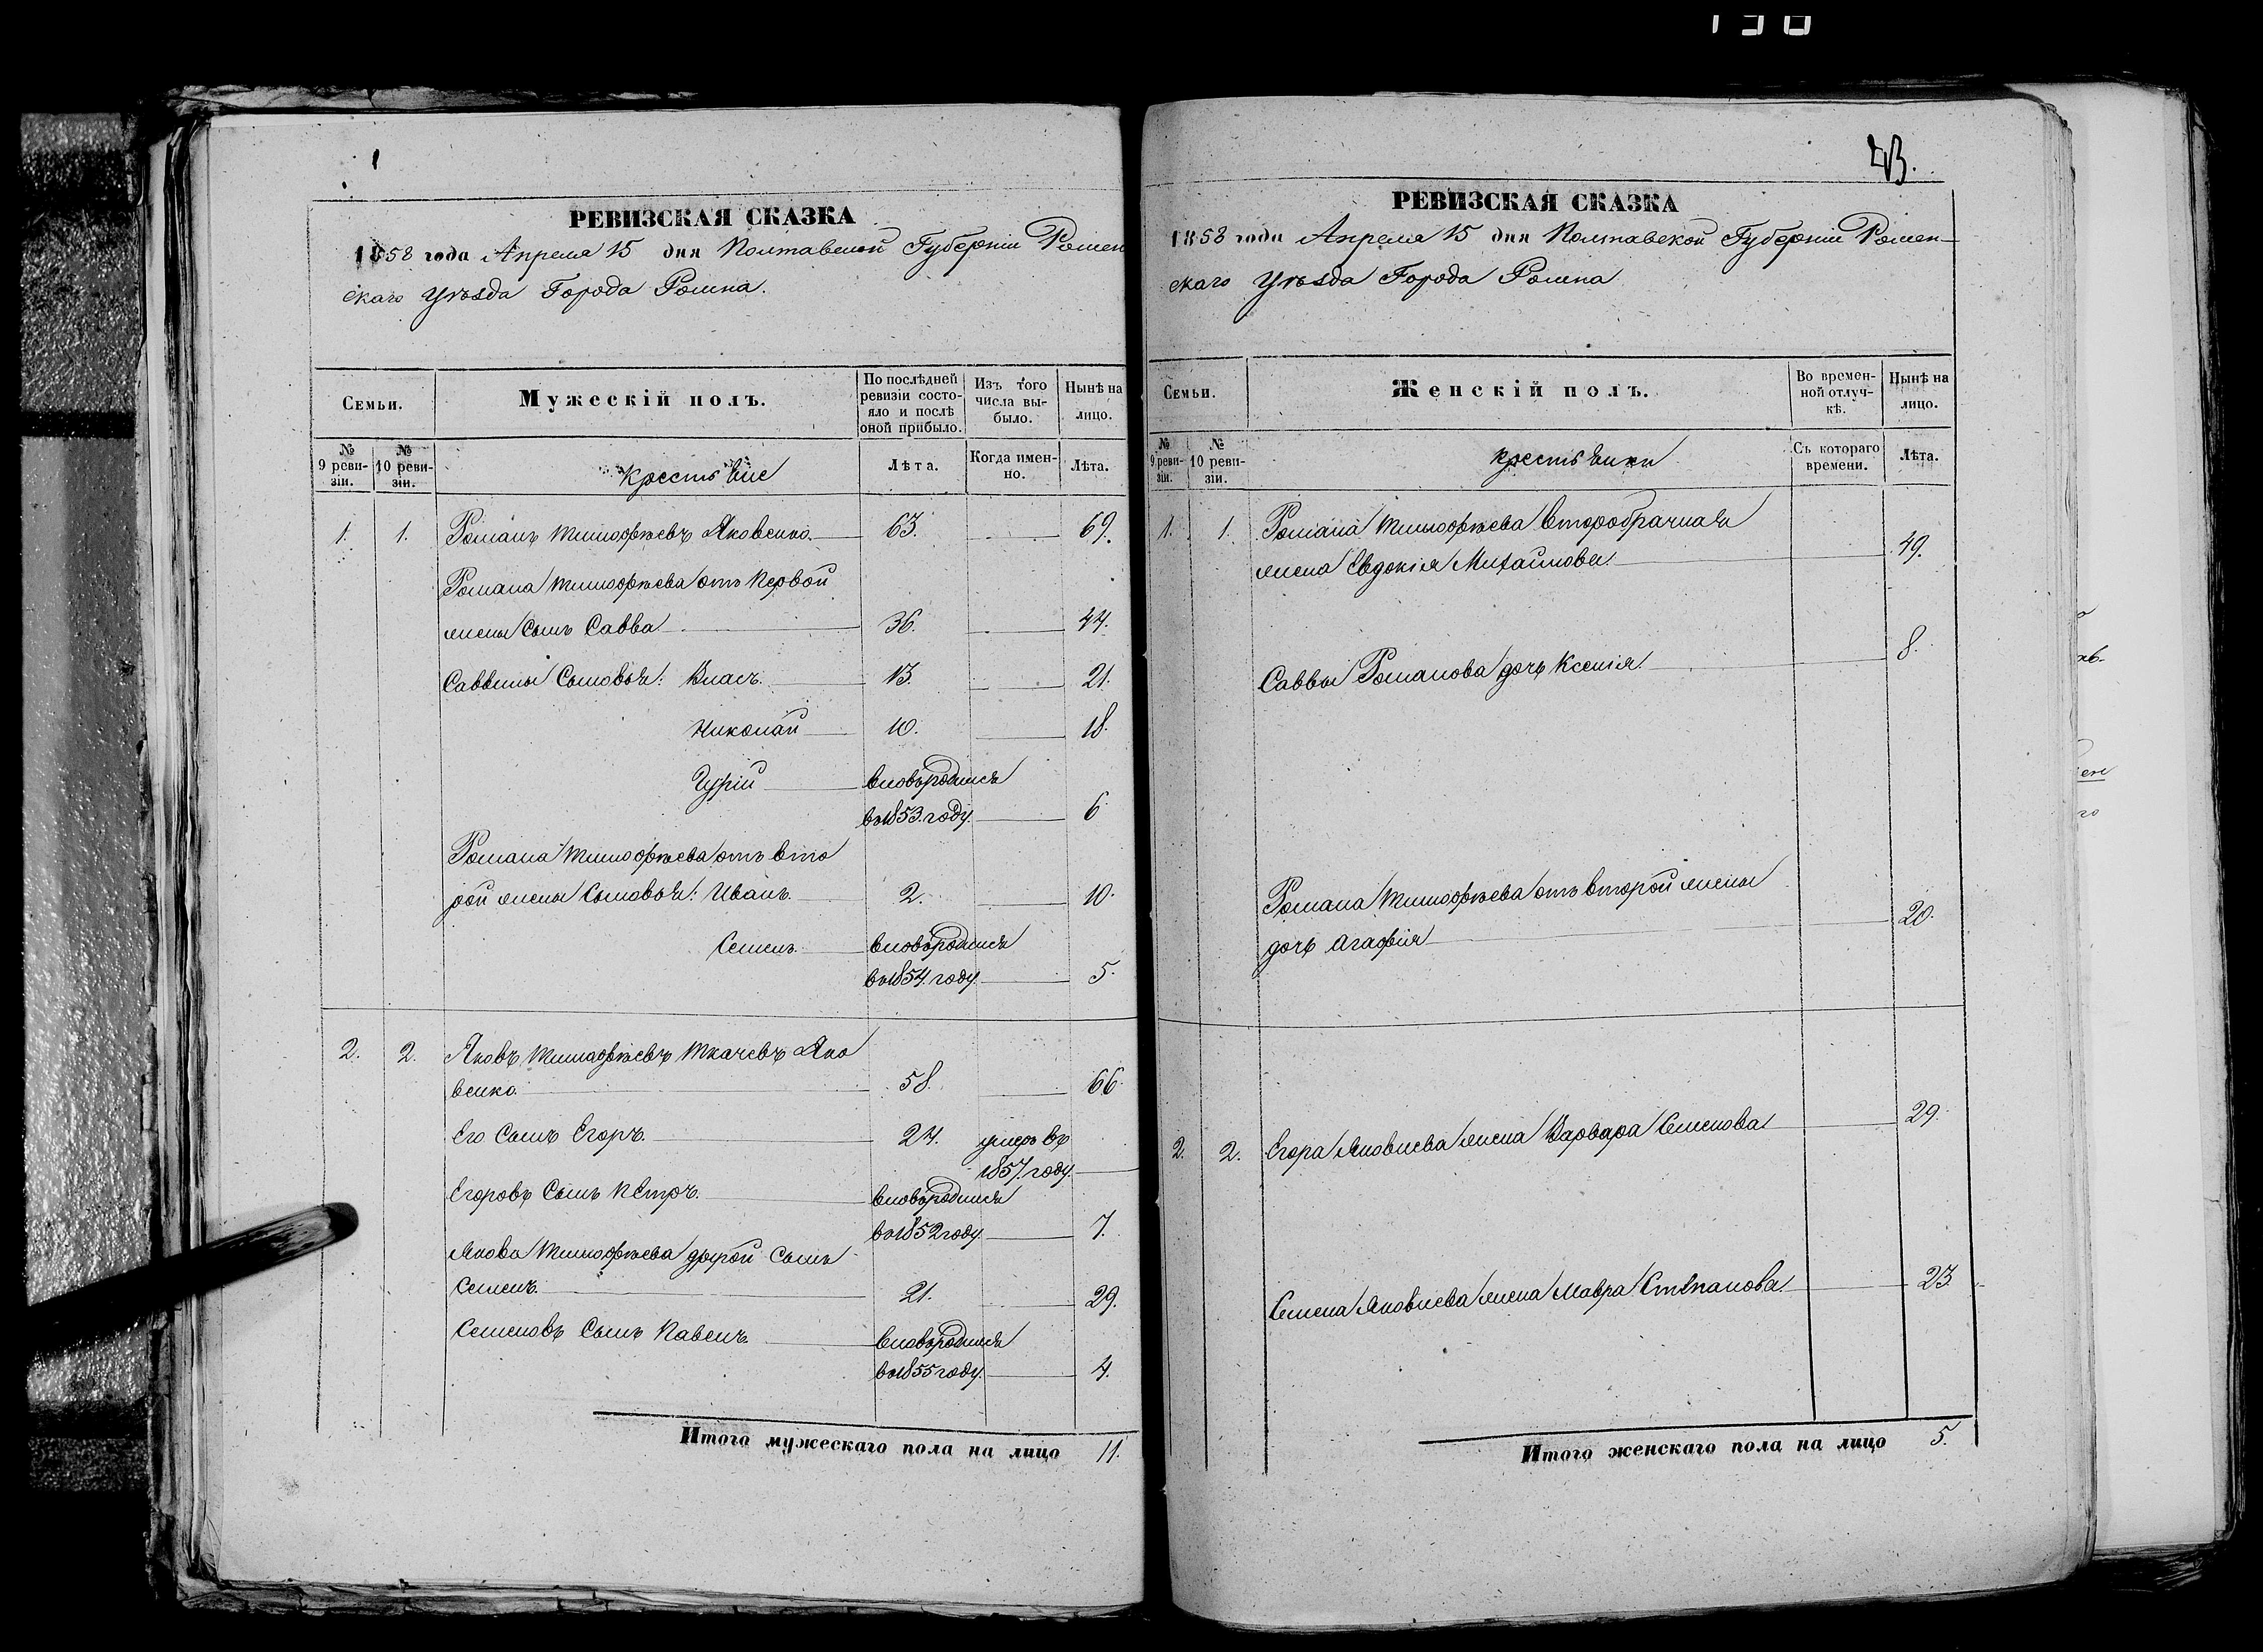 1
РЕВИЗСКАЯ СКАЗКА
1858 года Апреля 15 дня Полтавской Губерніи Ромен
скаго Уѣзда Города Ромна.
Семьи.
Мужескій полъ.
По послѣдней ревизіи состо-
яло и послѣ оной прибыло.
Изъ того числа вы-
было.
Нынѣ на лицо.
№ 9 реви-
зіи.
№ 10 реви-
зіи.
Крестьяне
Лѣта.
Когда имен-
но.
Лѣта.
1. 1. Романъ Тимофѣевъ Яковенко. 63. 69.
Романа Тимофѣева отъ первой
жены сынъ Савва 36. 44.
Саввины сыновья: Власъ. 13. 21.
Николай 10. 18.
Гурій вновьродился
въ 1853. году. 6
Романа Тимофѣева отъ вто
рой жены сыновья: Иванъ. 2. 10.
Семенъ. вновьродился
въ 1854. году. 5.
2. 2. Яковъ Тимофѣевъ Ткачевъ Яко
венко. 58. 66.
Его сынъ Егоръ. 24. умеръ въ
1857. году.
Егоровъ сынъ Петръ. вновьродился
въ 1852 году. 7.
Якова Тимофѣева другой сынъ
Семенъ. 21. 29.
Семеновъ сынъ Павелъ. вновьродился
въ 1855 году. 4.
Итого мужескаго пола на лицо 11.
43.
РЕВИЗСКАЯ СКАЗКА
1858 года Апреля 15 дня Полтавской Губерніи Ромен-
скаго Уѣзда Города Ромна
Семьи.
Женскій полъ.
Во времен-
ной отлуч-
кѣ.
Нынѣ на лицо.
№ 9 реви-
зіи.
№ 10 реви-
зіи.
крестьянки
Съ котораго времени.
Лѣта.
1. 1. Романа Тимофѣева второбрачная
жена Евдокія Михайлова. 49.
Саввы Романова дочь Ксенія. 8.
Романа Тимофѣева отъ второй жены
дочь Агафія 20.
2. 2. Егора Яковлева жена Варвара Семенова 29.
Семена Яковлева жена Мавра Степанова. 23.
Итого женскаго пола на лицо 5.